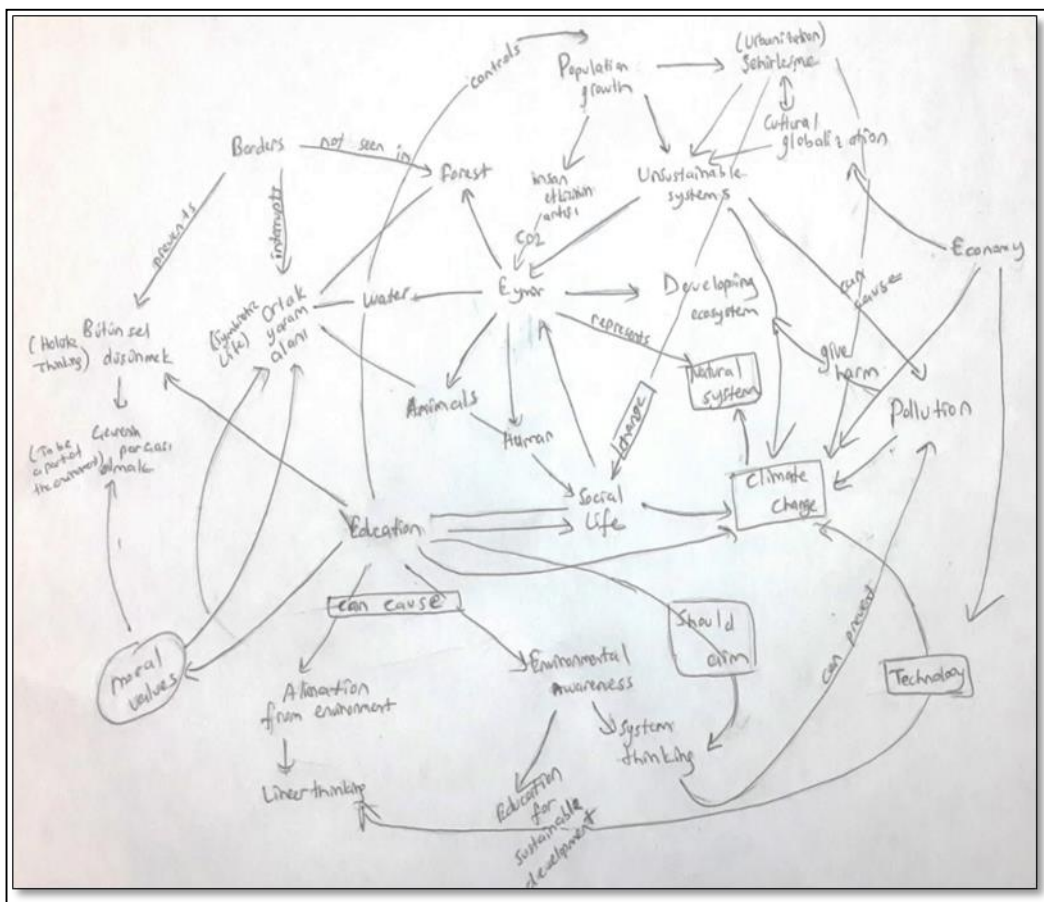 controls
Population
growth
(Urbanitation)
Şehirleşme
Cultural
globalization
Borders
not seen in
forest
insan
etkisinin
artışı
CO2
Unsustainable
systems
Economy
prevents
interrupts
(Holistic
Thinking)
Bütünsel
düşünmek
(Symbiotic
Life)
Ortak
yaşam
alanı
water
Eymir
Developing
ecosystem
represents
Natural
system
can
cause
give
harm
Pollution
Animals
Human
change
(To be
a part of
the environment)
Çevrenin
parçası
olmak
Education
Social
Life
Climate
Change
can cause
Should
aim
can prevent
Technology
moral
values
Alination
from environment
Environmental
Awareness
System
thinking
Lineer thinking
Education
for
sustainable
development